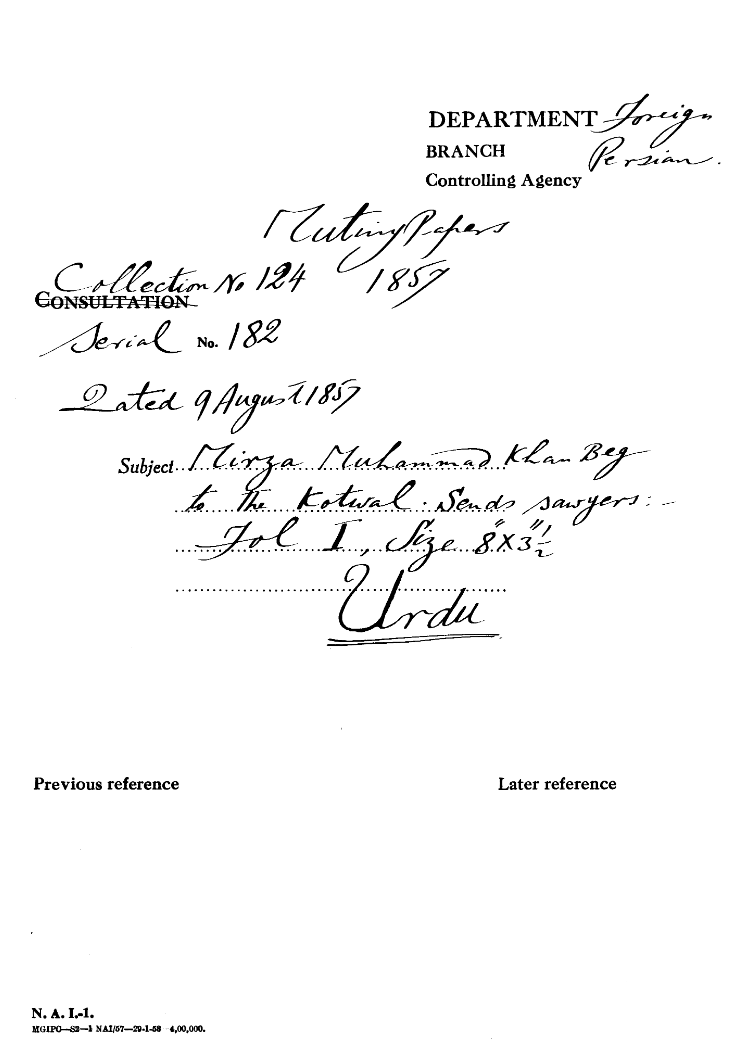 DEPARTMENT Foreign
BRANCH Persian.
Controlling Agency
Mutiny Papers
1857
Collection No 124
CONSULTATION
Serial No. 182
Dated 9 August 1857
Subject Mirza Muhammad Khan Beg
to the Kotwal. Sends sawyers:-
Fol I, Size 8"X3"½
Urdu
Previous reference Later reference
N. A. I.-1.
MGIPC—S2—1 NAI/57—29-1-58 4,00,000.